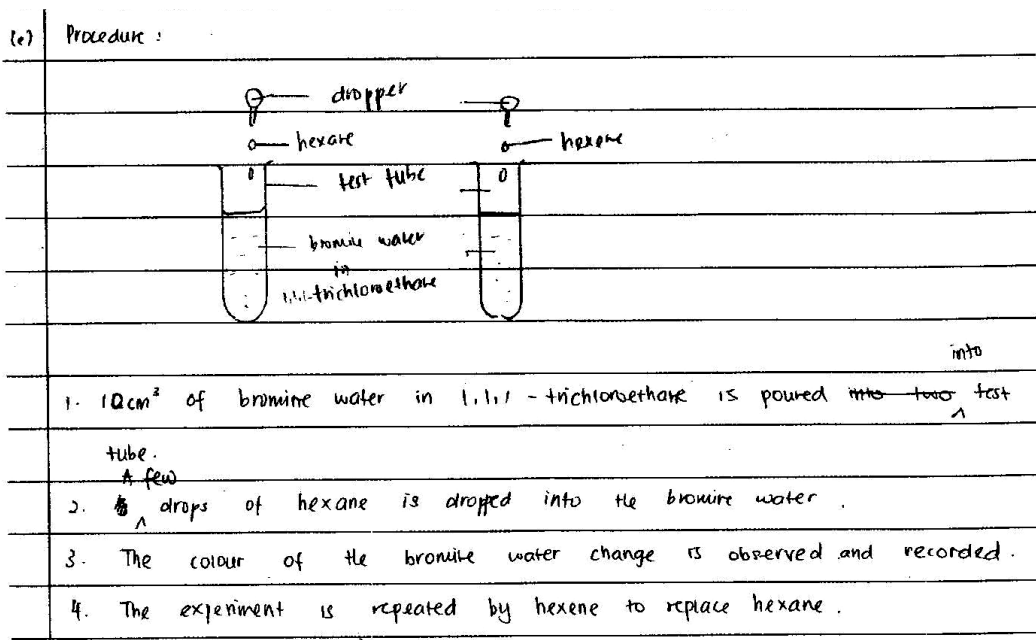 (e) Procedure :
dropper
hexane hexene
test tube
bromine water
in
1,1,1-trichloroethane
into
1. 10cm³ of bromine water in 1,1,1 - trichloroethane is poured into two test
tube.
A few
2. drops of hexane is dropped into the bromine water .
3. The colour of the bromine water change is observed and recorded.
4. The experiment is repeated by hexene to replace hexane .